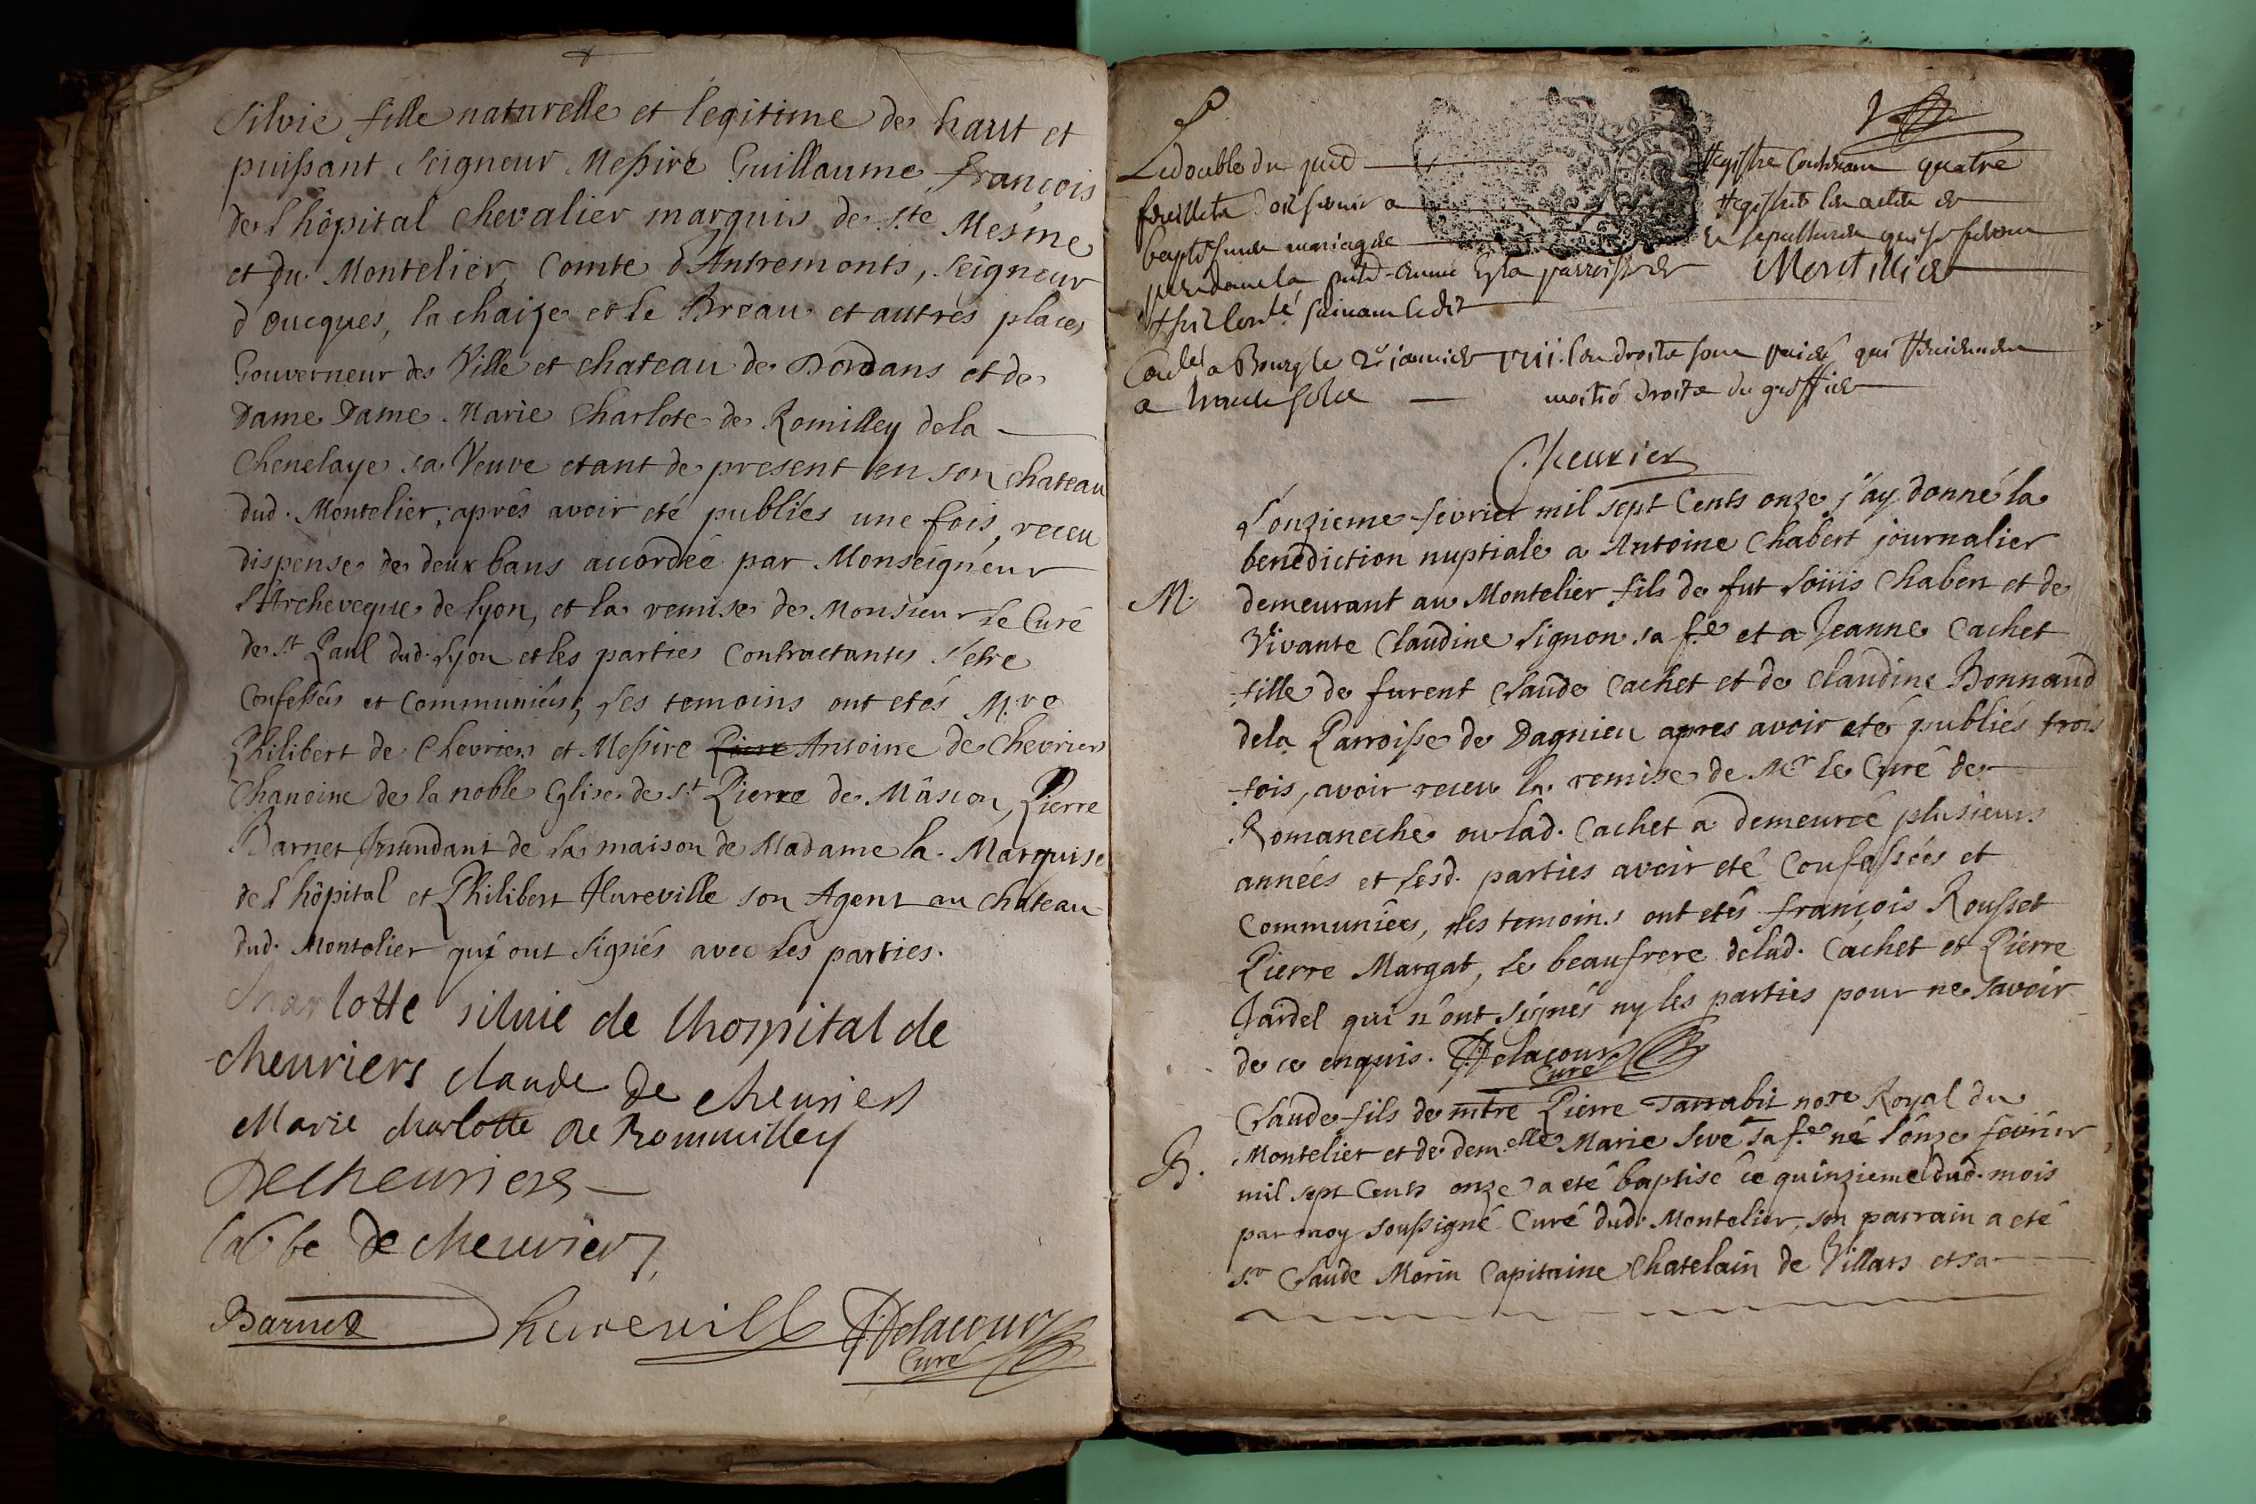 Silvie fille naturelle et legitime de haut et
puissant Seigneur Messire Guillaume françois
de l'hôpital chevalier marquis de Ste Mesme
et du Montelier, Comte d'Antremonts, Seigneur
d'Oucques, la chaize et le Breau et autres places
Gouverneur des Ville et chateau de Dordans et de
Dame Dame Marie Charlote de Romilley dela
Chenelaye sa Veuve etant de present en son chateau
dud. Montelier, aprés avoir eté publiés une fois, receu
dispense de deux bans accordée par Monseigneur
l'Archeveque de Lyon, et la remise de Monsieur le Curé
de St Paul dud. Lyon et les parties Contractantes s'etre
Confessés et Communiés, Les temoins ont etés M.re
Philibert de Chevriers et Messire Pierre Antoine de Chevriers
Chanoine de la noble Eglise de St Pierre de Mâscon, Pierre
Barnet Intendant de la maison de Madame la Marquise
de l'hôpital et Philibert Hureville son Agent au chateau
dud. Montelier qui ont signés avec les parties.
Charlotte silvie de lhospital de
cheuriers claude de cheuriers
Marie charlotte de Rommilley
Decheuriers
Labbe de cheurier
Barnet hureuille Delacour
Curé
Le double du pnt Registre Contenant quatre
feuillets doit servir a Registrer les actes de
baptesmes mariages et sepultures qui se feront
pendant la pnte année en la parroisse de Montillier
suivant ledit
a Bourg le 2e januier 1711. les droits sont qui
moitié droits du greffier
Cheurier
L'onzieme fevrier mil sept Cents onze j'ay donné la
benediction nuptiale a Antoine Chabert journalier
M. demeurant au Montelier fils de fut Loüis Chabert et de
Vivante Claudine Signon sa fe et a Jeanne Cachet
fille de furent Claude Cachet et de Claudine Bonnaud
dela Parroisse de Dagnieu apres avoir eté publiés trois
fois, avoir receu la remise de Mr le Curé de
Romaneche ou lad. Cachet a demeuré plusieurs
années et lesd. parties avoir eté Confessées et
Communiées, les temoins ont etés françois Rousset
Pierre Margat, le beaufrere delad. Cachet et Pierre
Jardel qui n'ont signés ny les parties pour ne savoir
de ce enquis. Delacour
Curé
Claude fils de mtre Pierre Tarrabit nore Royal du
Montelier et de demelle Marie Sevé sa fe né l'onze fevrier
B. mil sept Cents onze a eté baptisé ce quinzieme dud. mois
par moy soussigné Curé dud. Montelier, son parrain a eté
sr Claude Morin Capitaine Chatelain de Villars et sa